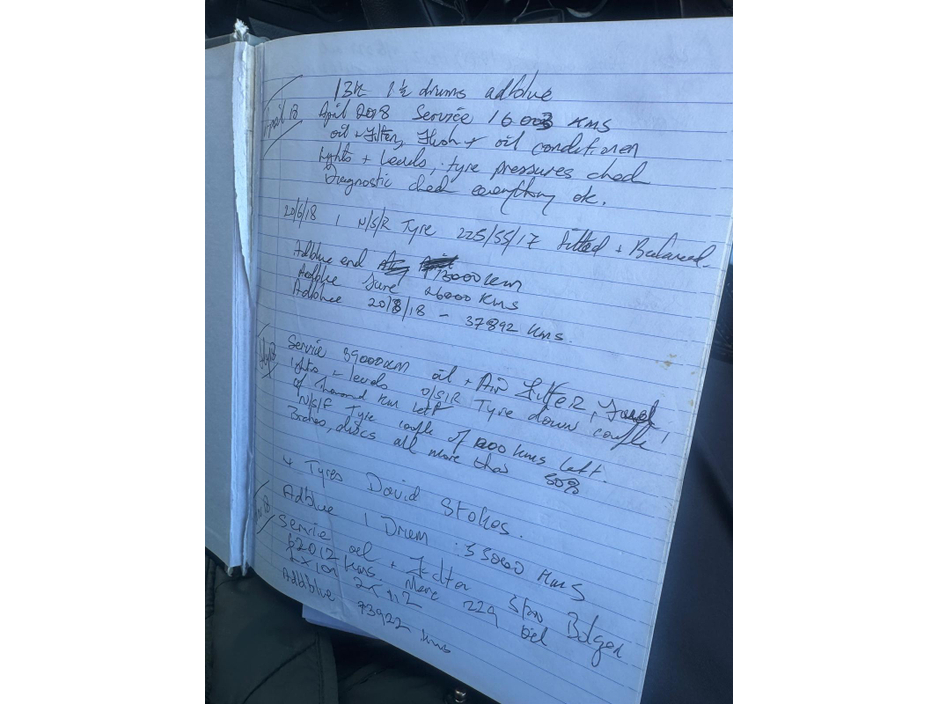 13k 1 1/2 drums adblue
April 18 April 2018 Service 16003 KMS
oil + Filter, flush + oil condition
Lights + Levels, tyre pressures check
Diagnostic check everything ok.
20/6/18 1 N/S/R Tyre 225/55/17 fitted + Balanced.
Adblue end 13000 km
Adblue June 26000 KMS
Adblue 20/8/18 - 37892 KMS.
Service 39000KM oil + Air Filter, Fuel
lights + levels O/S/R Tyre down couple
of thousand KM left
N/S/F Tyre couple of 1000 KMS left.
Brakes, discs all more than 50%
4 Tyres David Stokes.
Adblue 1 Drum 53000 KMS
Service oil + Filter Bolger
KMS. Merc 229 oil
Addblue 73922 kms